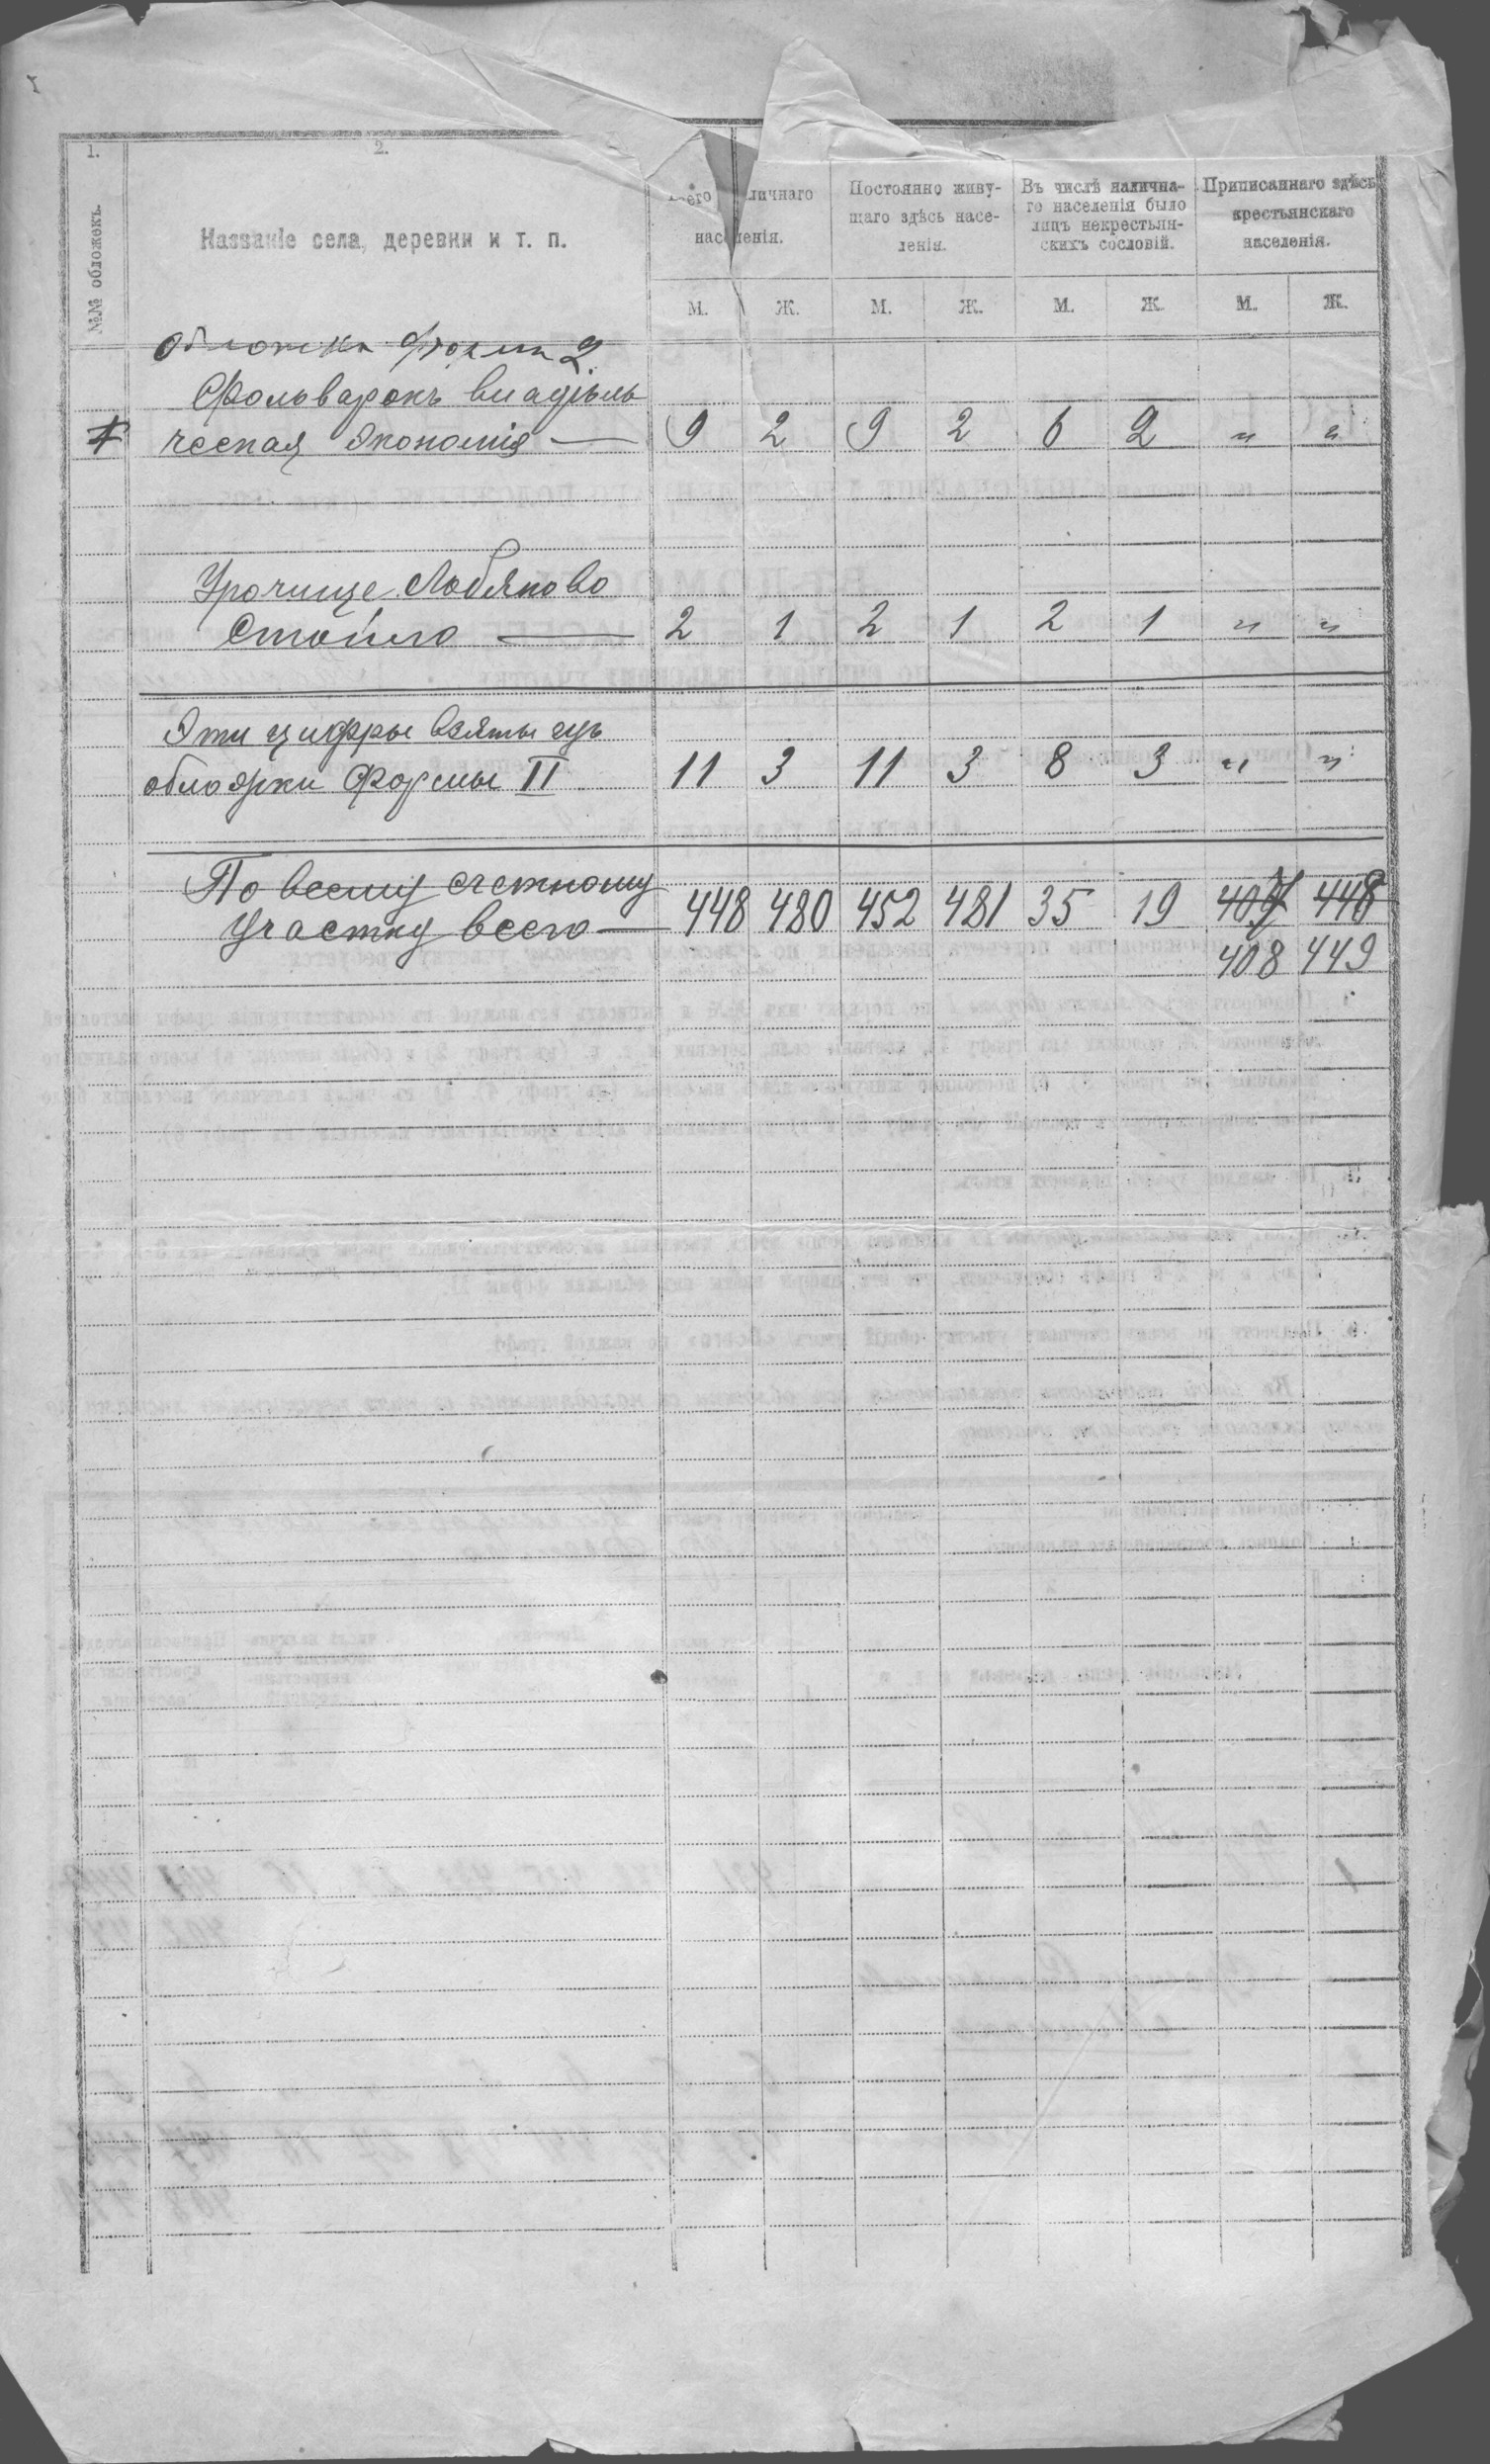 1.
2.
№№ обложекъ.
Названіе села, деревни и т. п.
личнаго
населенія.
Постоянно живу-
щаго здѣсь насе-
ленія.
Въ числѣ налична-
го населенія было
лицъ некрестьян-
скихъ сословій.
Приписаннаго здѣсь
крестьянскаго
населенія.
М. Ж. М. Ж. М. Ж. М. Ж.
Обложка форма 2
Фольварокъ владѣль
ческая Экономія — 9 2 9 2 6 2 " "
Урочище
Стойло — 2 1 2 1 2 1 " "
Эти цифры взяты изъ
обложки Формы II 11 3 11 3 8 3 " "
По всему счетному
участку всего — 448 480 452 481 35 19 407 448
408 449